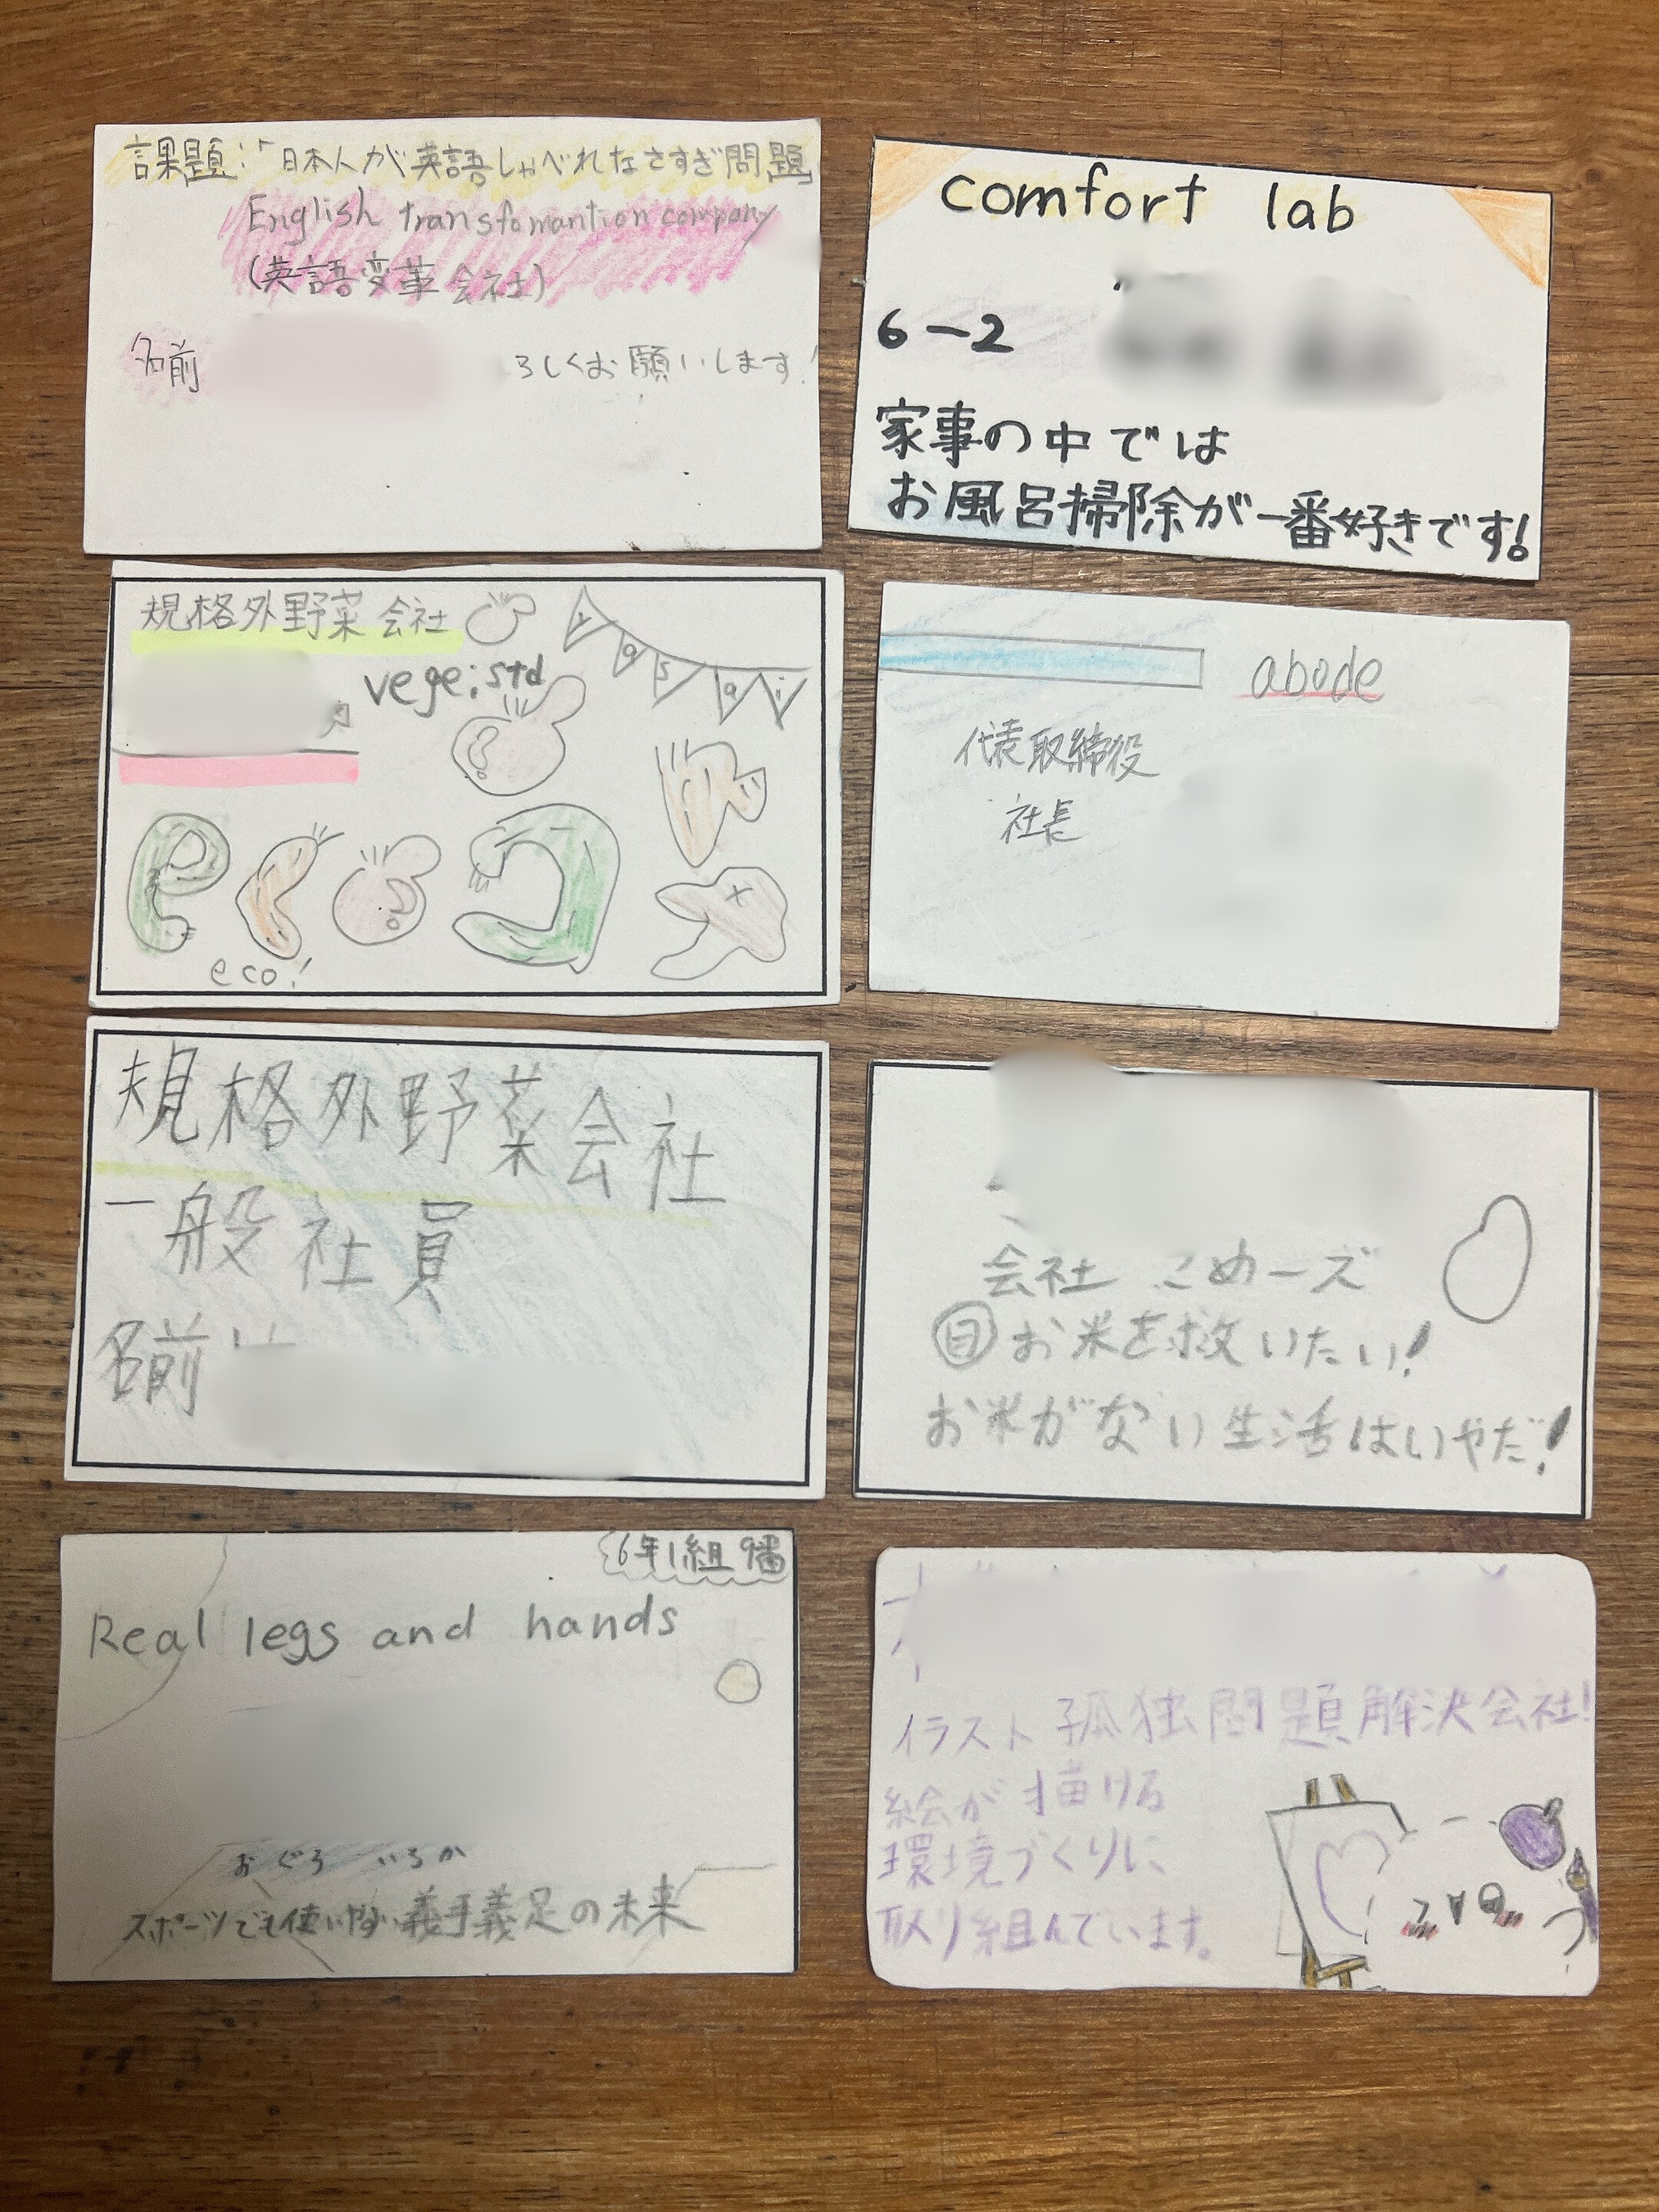 課題:「日本人が英語しゃべれなさすぎ問題
English transfomantion company
(英語変革会社)
名前
ろしくお願いします!
comfort lab
6-2
家事の中では
お風呂掃除が一番好きです!
規格外野菜会社
yasai
vege:std
eco!
abode
代表取締役
社長
規格外野菜会社
一般社員
名前
会社 こめーズ
目 お米を救いたい!
お米がない生活はいやだ!
6年1組 9番
Real legs and hands
スポーツでも使いやすい義手義足の未来
イラスト孤独問題解決会社!
絵が描ける
環境づくりに
取り組んでいます。